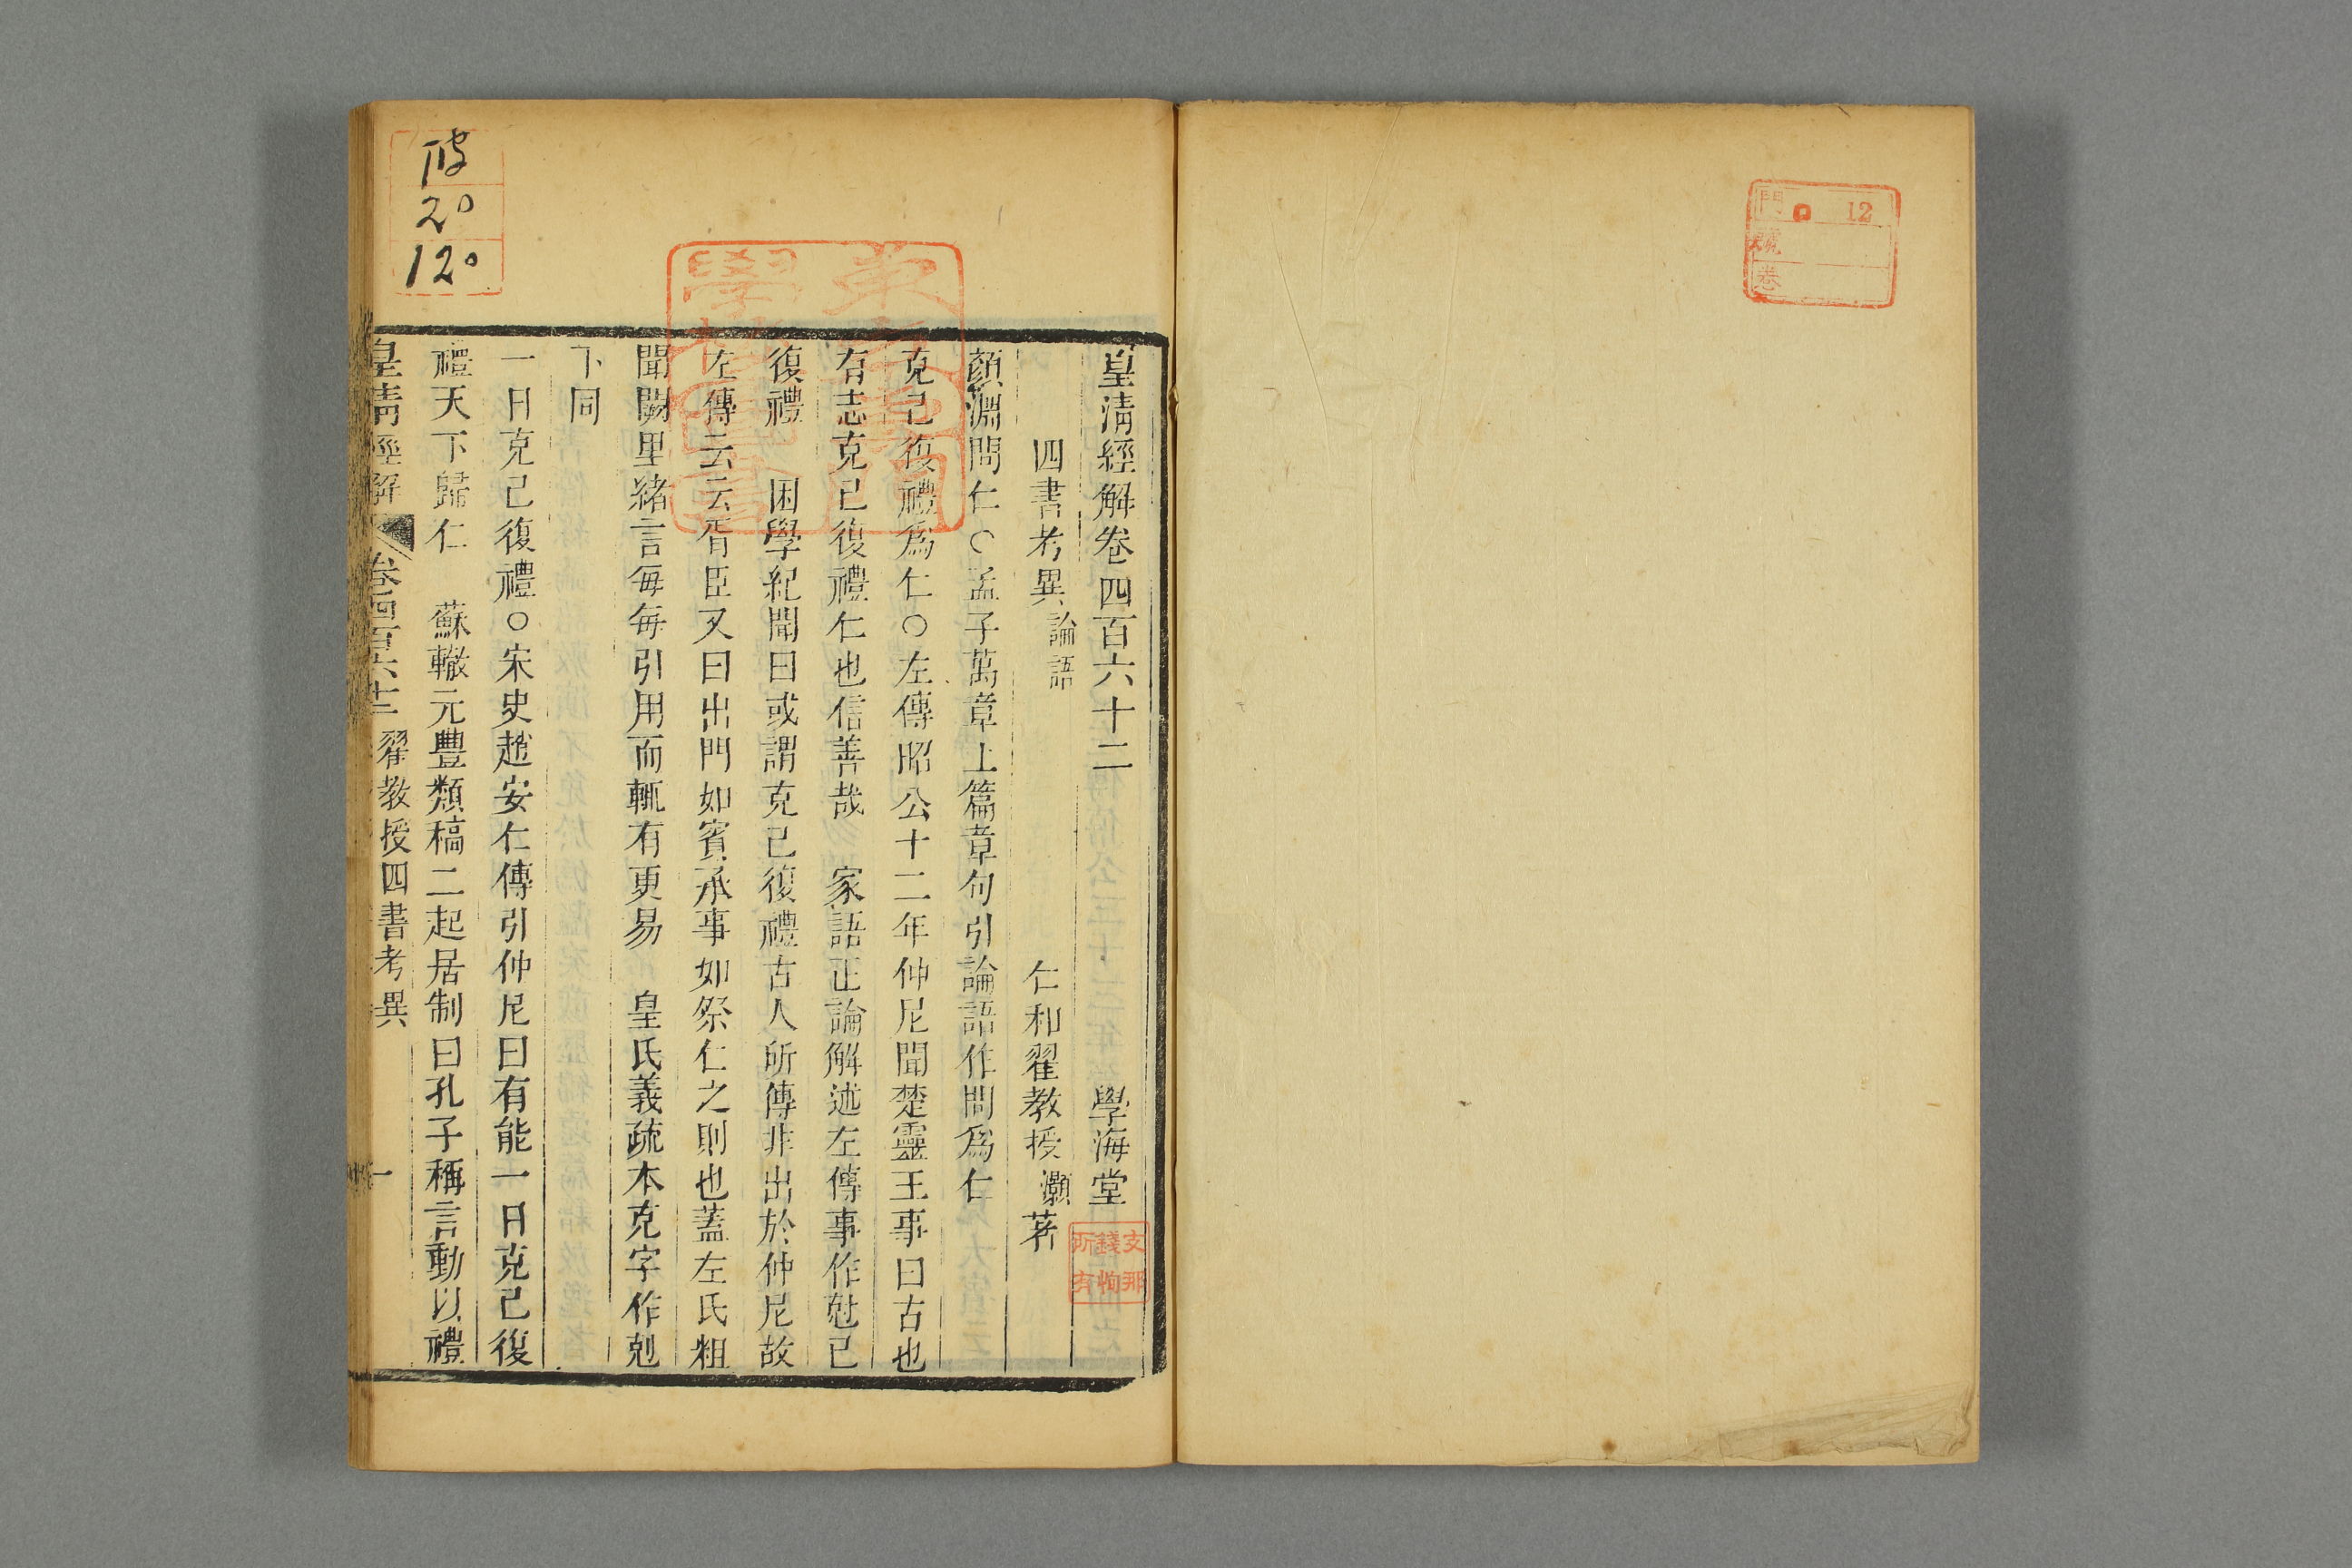 門 12
號
卷
皇淸經解卷四百六十二 學海堂
四書考異 論語 仁和翟教授灝著
顏淵問仁○孟子萬章上篇章句引論語作問爲仁
克己復禮爲仁○左傳昭公十二年仲尼聞楚靈王事曰古也
有志克己復禮仁也信善哉 家語正論解述左傳事作尅己
復禮 困學紀聞曰或謂克己復禮古人所傳非出於仲尼故
左傳云云胥臣又曰出門如賓承事如祭仁之則也蓋左氏粗
聞闕里緒言每每引用而輒有更易 皇氏義疏本克字作剋
下同
一日克己復禮○宋史趙安仁傳引仲尼曰有能一日克己復
禮天下歸仁 蘇轍元豐類稿二起居制曰孔子稱言動以禮
皇淸經解 卷四百六十二 翟教授四書考異 一
支那
錢恂
所有
20
120